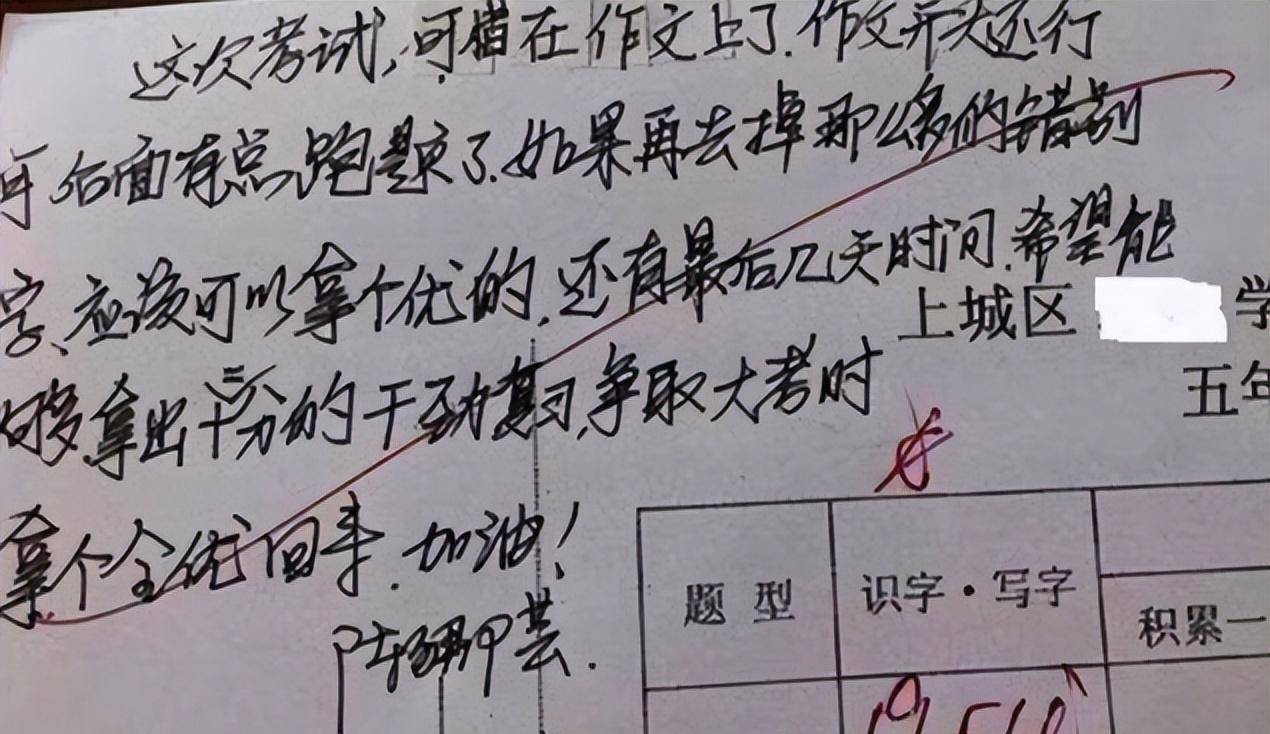 这次考试,可惜在作文上了.作文开头还行
后面有点跑题了.如果再去掉那么多的错别
字、应该可以拿个优的.还有最后几天时间.希望能
够拿出十二分的干劲复习,争取大考时
拿个全优回来.加油!
上城区 学
五年
题型
识字·写字
积累一